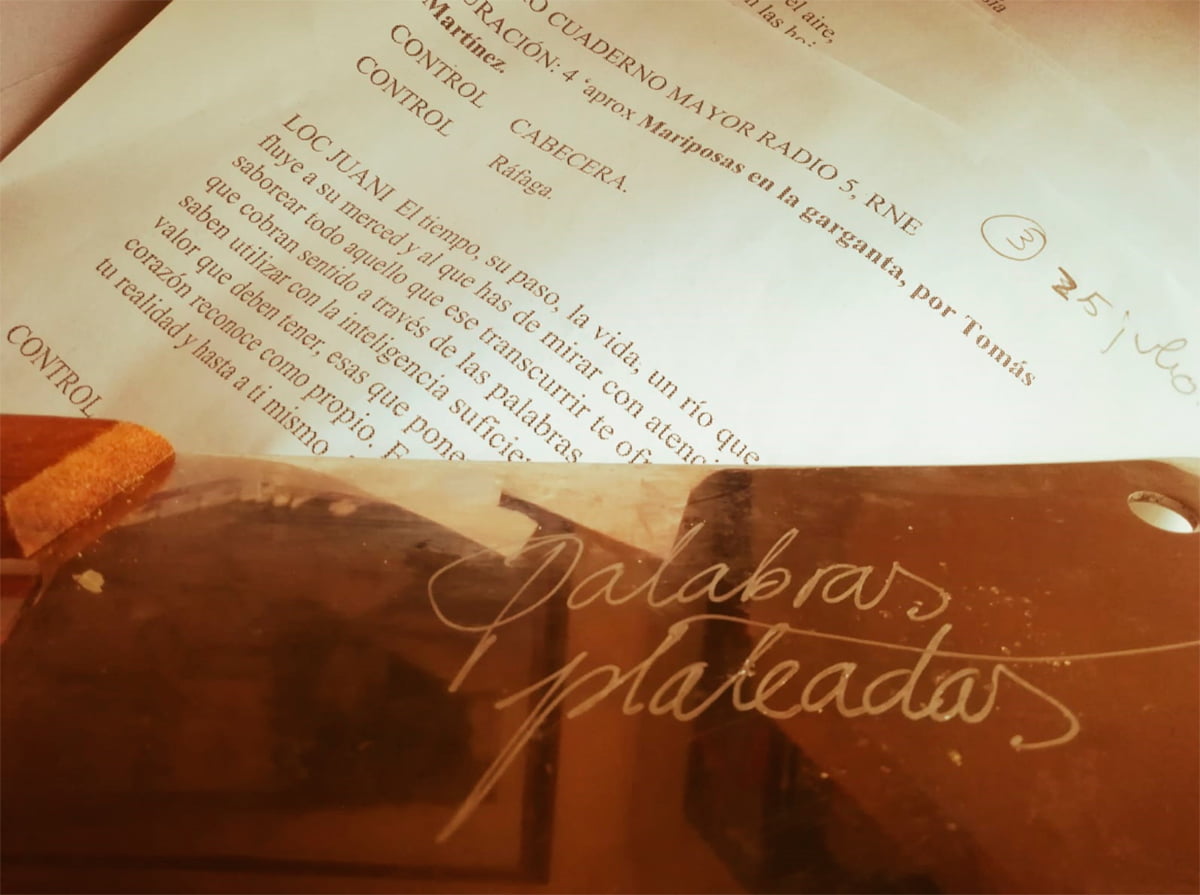 el aire,
las
O CUADERNO MAYOR RADIO 5, RNE
URACIÓN: 4 'aprox Mariposas en la garganta, por Tomás
Martínez.
CONTROL CABECERA.
CONTROL Ráfaga.
LOC JUANI El tiempo, su paso, la vida, un río que
fluye a su merced y al que has de mirar con atenc
saborear todo aquello que ese transcurrir te of
que cobran sentido a través de las palabras,
saben utilizar con la inteligencia suficie
valor que deben tener, esas que pone
corazón reconoce como propio. E
tu realidad y hasta a ti mismo
CONTROL
3
25 julio
Palabras
plateadas